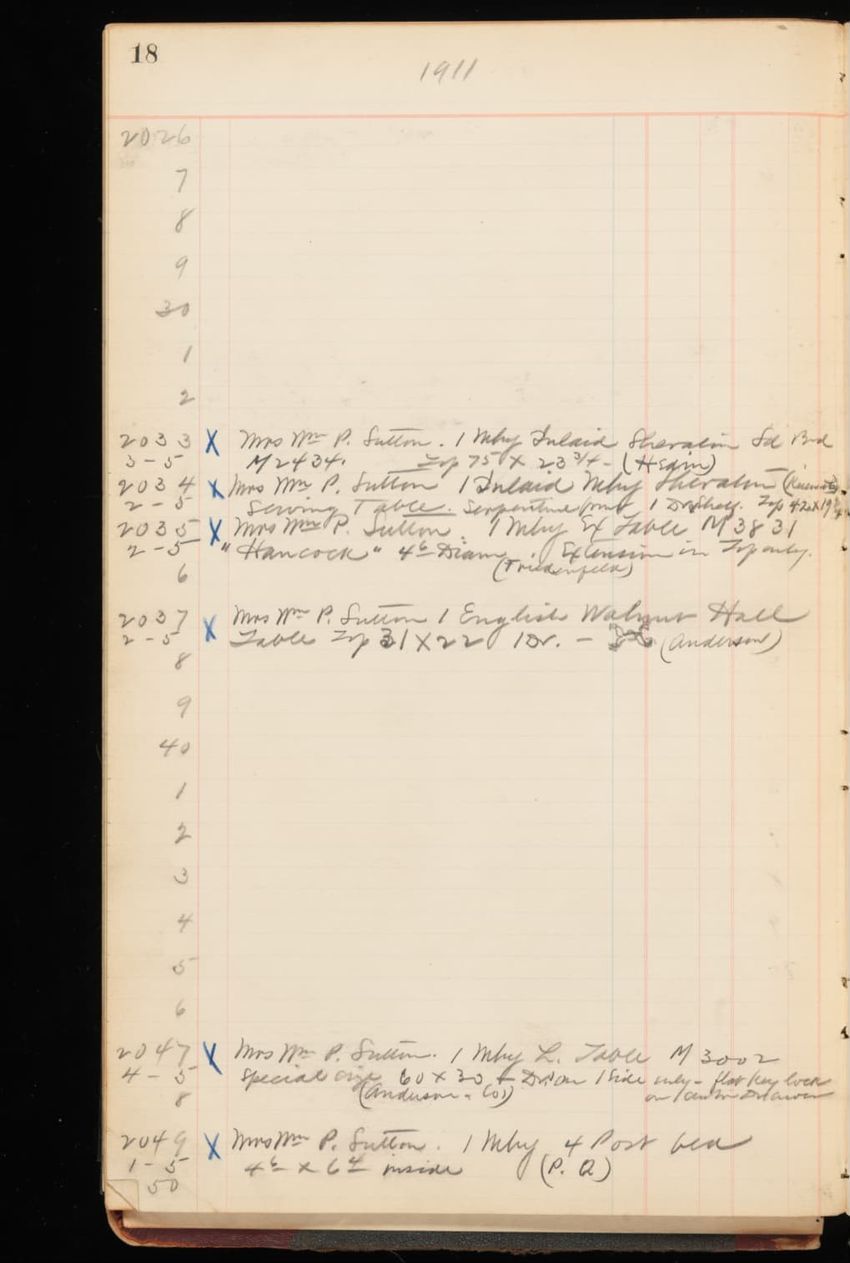 18
1911
2026
7
8
9
30
1
2
2033 X Mrs Wm P. Sutton. 1 Mhy Inlaid Sheraton Sd Brd
3-5 M 2434. Top 75 X 23 3/4 - (Hedin)
2034 X Mrs Wm P. Sutton 1 Inlaid Mhy Sheraton
2-5 Serving Table. Serpentine front 1 Dr Shelf. Top 42 X 19
2035 X Mrs Wm P. Sutton. 1 Mhy Ex Table M 3831
2-5 "Hancock" 4 6 Diam. Extension in Top only.
6 (Friedenfeld)
2037 X Mrs Wm P. Sutton 1 English Walnut Hall
2-5 Table Top 31 X 22 1 Dr. - (Anderson)
8
9
40
1
2
3
4
5
6
2047 X Mrs Wm P. Sutton. 1 Mhy L. Table M 3002
4-5 Special size 60 X 30 Dr on 1 Side only - flat key lock
8 (Anderson. Co) on center Drawer
2049 X Mrs Wm P. Sutton. 1 Mhy 4 Post bed
1-5 4 6 X 6 4 inside (P. Q)
50